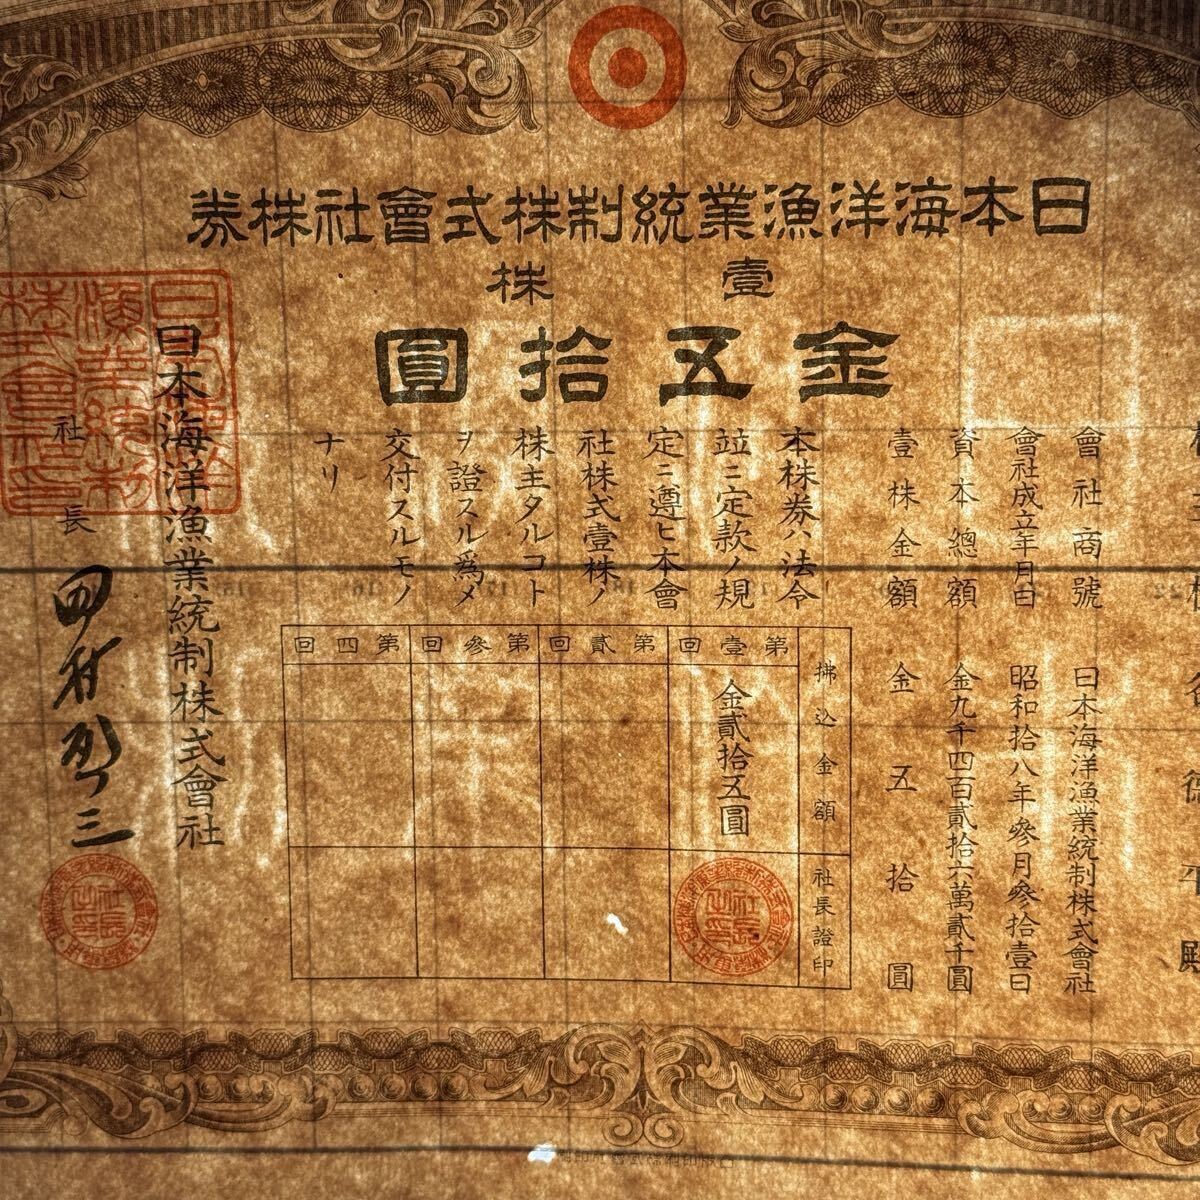 日本海洋漁業統制株式會社株券
壹株
金五拾圓
會社商號 日本海洋漁業統制株式會社
會社成立年月日 昭和拾八年參月參拾壹日
資本總額 金九千四百貳拾六萬貳千圓
壹株金額 金五拾圓
本株券ハ法令
竝ニ定款ノ規
定ニ遵ヒ本會
社株式壹株ノ
株主タルコト
ヲ證スル爲メ
交付スルモノ
ナリ
拂込金額
社長證印
第壹回
金貳拾五圓
第貳回
第參回
第四回
日本海洋漁業統制株式會社
社長
日本海洋
漁業統制
株式會社印
社長之印
社長之印
平殿